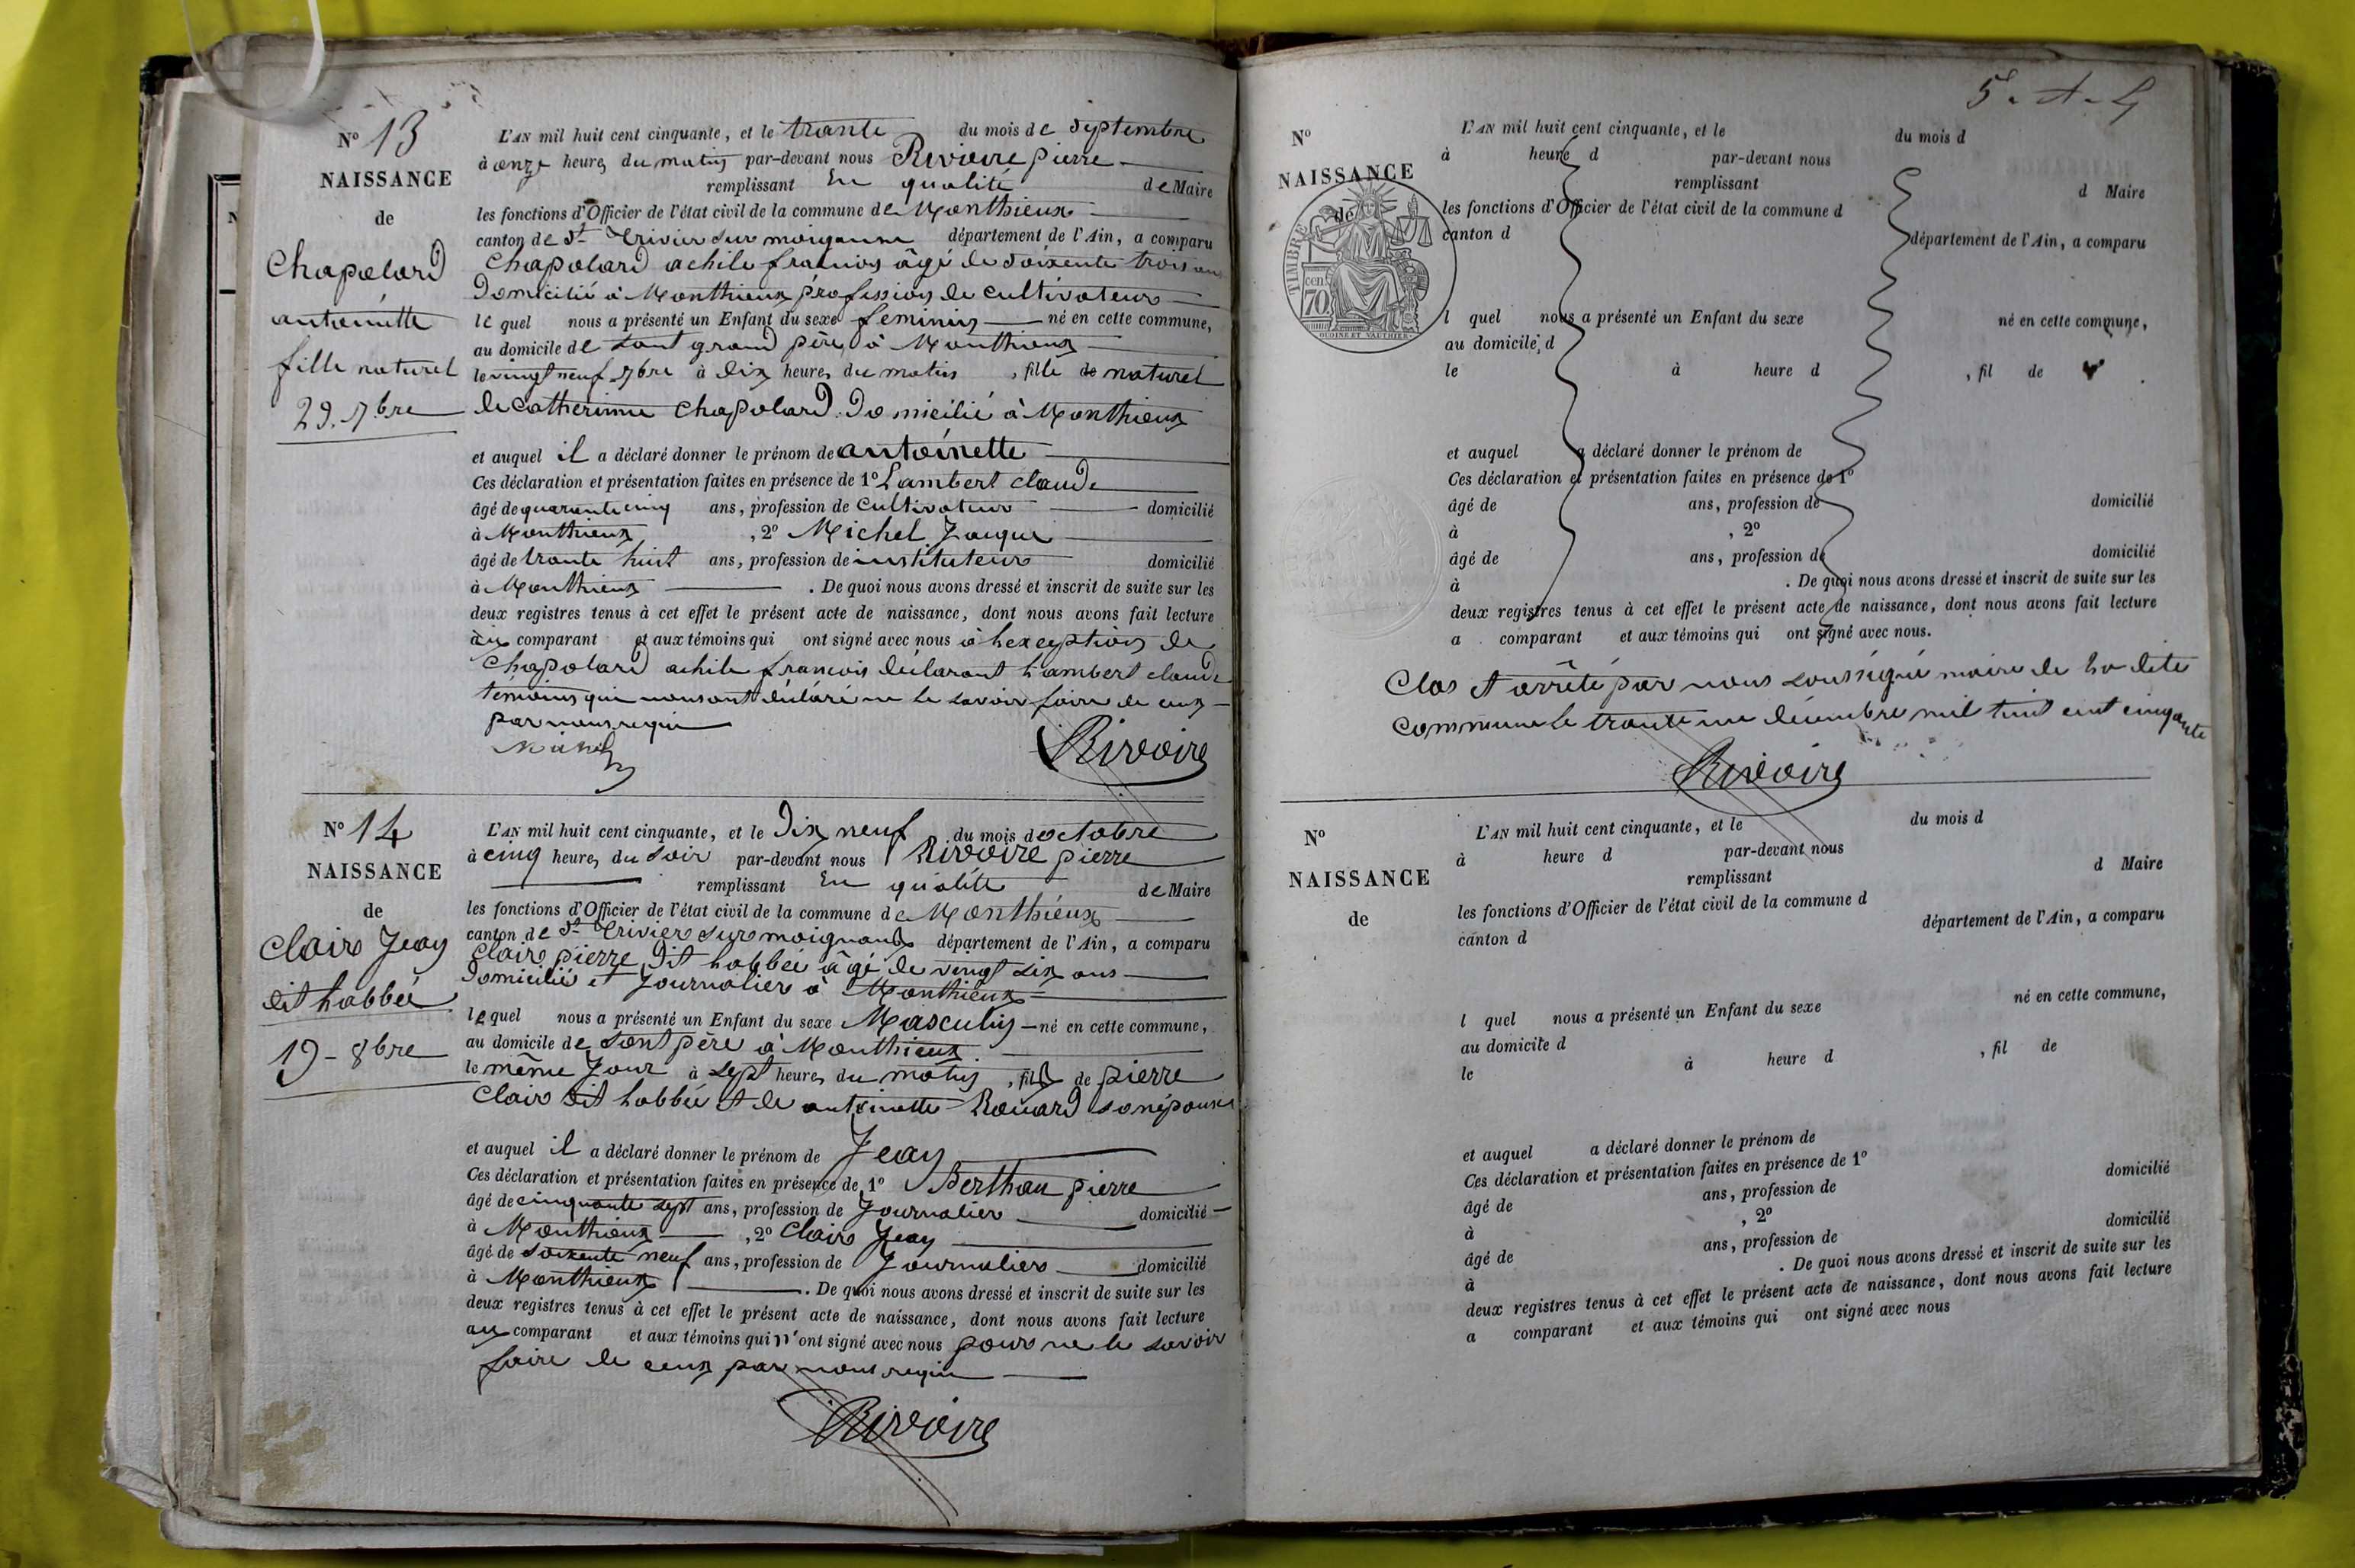 N° 13
NAISSANCE
de
Chapolard
antoinette
fille naturel
29. 7bre
L'AN mil huit cent cinquante, et le trante du mois de septembre
à onze heures du matin par-devant nous Rivoire pierre
remplissant en qualité de Maire
les fonctions d'Officier de l'état civil de la commune de Monthieux
canton de St Trivier sur moignans département de l'Ain, a comparu
Chapolard achile francois âgé de soixente trois ans
Domicilié à Monthieux profession de cultivateur
lequel nous a présenté un Enfant du sexe feminin né en cette commune,
au domicile de sont grand père à Monthieux
le vingt neuf 7bre à dix heures du matin, fille de naturel
de catherinne Chapolard Domicilié à Monthieux
et auquel il a déclaré donner le prénom de antoinette
Ces déclaration et présentation faites en présence de 1° Lambert claude
âgé de quarante cinq ans, profession de cultivateur domicilié
à Monthieux, 2° Michel Jacque
âgé de trante huit ans, profession de instituteur domicilié
à Monthieux. De quoi nous avons dressé et inscrit de suite sur les
deux registres tenus à cet effet le présent acte de naissance, dont nous avons fait lecture
au comparant et aux témoins qui ont signé avec nous à lexception de
Chapolard achile francois déclarant Lambert claude
témoins qui nous ont déclaré ne le savoir faire de eux
par nous requi
Michel Rivoire
N° 14
NAISSANCE
de
Clair Jean
dit labbée
19 - 8bre
L'AN mil huit cent cinquante, et le Dix neuf du mois d octobre
à cinq heures du soir par-devant nous Rivoire pierre
remplissant en qualité de Maire
les fonctions d'Officier de l'état civil de la commune de Monthieux
canton de St Trivier sur moignans département de l'Ain, a comparu
Clair pierre Dit labbée âgé de vingt six ans
Domicilié et Journalier à Monthieux
lequel nous a présenté un Enfant du sexe Masculin né en cette commune,
au domicile de sont père à Monthieux
le même Jour à sept heures du matin, fils de pierre
Clair Dit labbée et de antoinette Rouard son épouse
et auquel il a déclaré donner le prénom de Jean
Ces déclaration et présentation faites en présence de 1° Berthau pierre
âgé de cinquante sept ans, profession de Journalier domicilié
à Monthieux, 2° Clair Jean
âgé de soixente neuf ans, profession de Journalier domicilié
à Monthieux. De quoi nous avons dressé et inscrit de suite sur les
deux registres tenus à cet effet le présent acte de naissance, dont nous avons fait lecture
au comparant et aux témoins qui n'ont signé avec nous pour ne le savoir
faire de eux par nous requi
Rivoire
N°
NAISSANCE
de
TIMBRE
70 cen.
OUDINÉ ET VAUTHIER
L'AN mil huit cent cinquante, et le du mois d
à heure d par-devant nous
remplissant d Maire
les fonctions d'Officier de l'état civil de la commune d
canton d département de l'Ain, a comparu
l quel nous a présenté un Enfant du sexe né en cette commune,
au domicile d
le à heure d, fil de
et auquel a déclaré donner le prénom de
Ces déclaration et présentation faites en présence de 1°
âgé de ans, profession de domicilié
à, 2°
âgé de ans, profession de domicilié
à. De quoi nous avons dressé et inscrit de suite sur les
deux registres tenus à cet effet le présent acte de naissance, dont nous avons fait lecture
a comparant et aux témoins qui ont signé avec nous.
Clos et arrêté par nous soussigné maire de la dite
commune le trante un décembre mil huit cent cinquante
Rivoire
N°
NAISSANCE
de
L'AN mil huit cent cinquante, et le du mois d
à heure d par-devant nous
remplissant d Maire
les fonctions d'Officier de l'état civil de la commune d
canton d département de l'Ain, a comparu
l quel nous a présenté un Enfant du sexe né en cette commune,
au domicile d
le à heure d, fil de
et auquel a déclaré donner le prénom de
Ces déclaration et présentation faites en présence de 1°
âgé de ans, profession de domicilié
à, 2°
âgé de ans, profession de domicilié
à. De quoi nous avons dressé et inscrit de suite sur les
deux registres tenus à cet effet le présent acte de naissance, dont nous avons fait lecture
a comparant et aux témoins qui ont signé avec nous